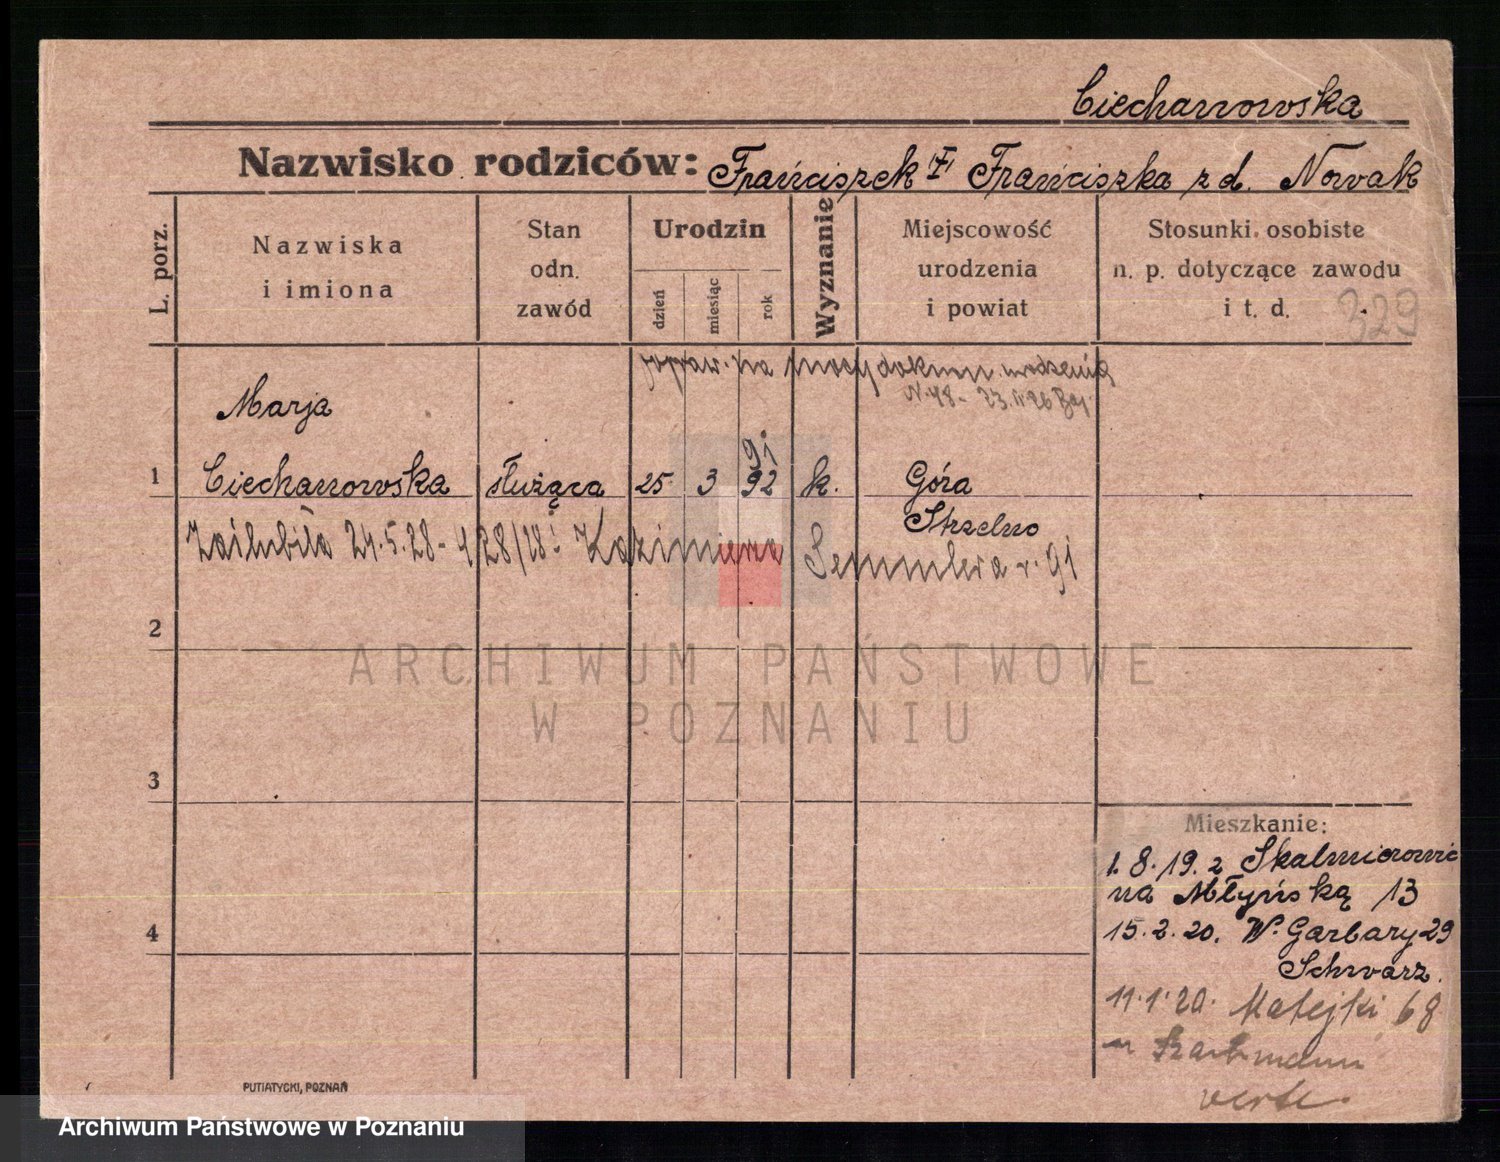 Ciechanowska
Nazwisko rodziców: Franciszek i Franciszka z d. Nowak
L. porz.
Nazwiska
i imiona
Stan
odn.
zawód
Urodzin
dzień
miesiąc
rok
Wyznanie
Miejscowość
urodzenia
i powiat
Stosunki osobiste
n. p. dotyczące zawodu
i t. d.
329
popraw. na mocy dokum. urodzenia
N. 48 - 23. 26
Marja
91
1 Ciechanowska służąca 25 3 92 k. Góra
Strzelno
Zaślubiła 24.5.28 - 428/28 : Kazimierza Semmlera r. 91
2
ARCHIWUM PAŃSTWOWE
W POZNANIU
3
Mieszkanie:
1. 8. 19. z Skalmierowic
na Młyńską 13
4
15. 2. 20. W. Garbary 29
Schwarz.
11. 1. 20. Matejki 68
verte.
PUTIATYCKI, POZNAŃ
Archiwum Państwowe w Poznaniu